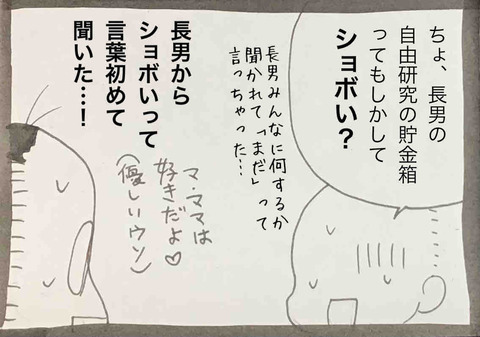 ちょ、長男の
自由研究の貯金箱
ってもしかして
ショボい?
長男みんなに何するか
聞かれて「まだ」って
言っちゃった…
長男から
ショボいって
言葉初めて
聞いた…!
マ・ママは
好きだよ♡
(優しいウソ)